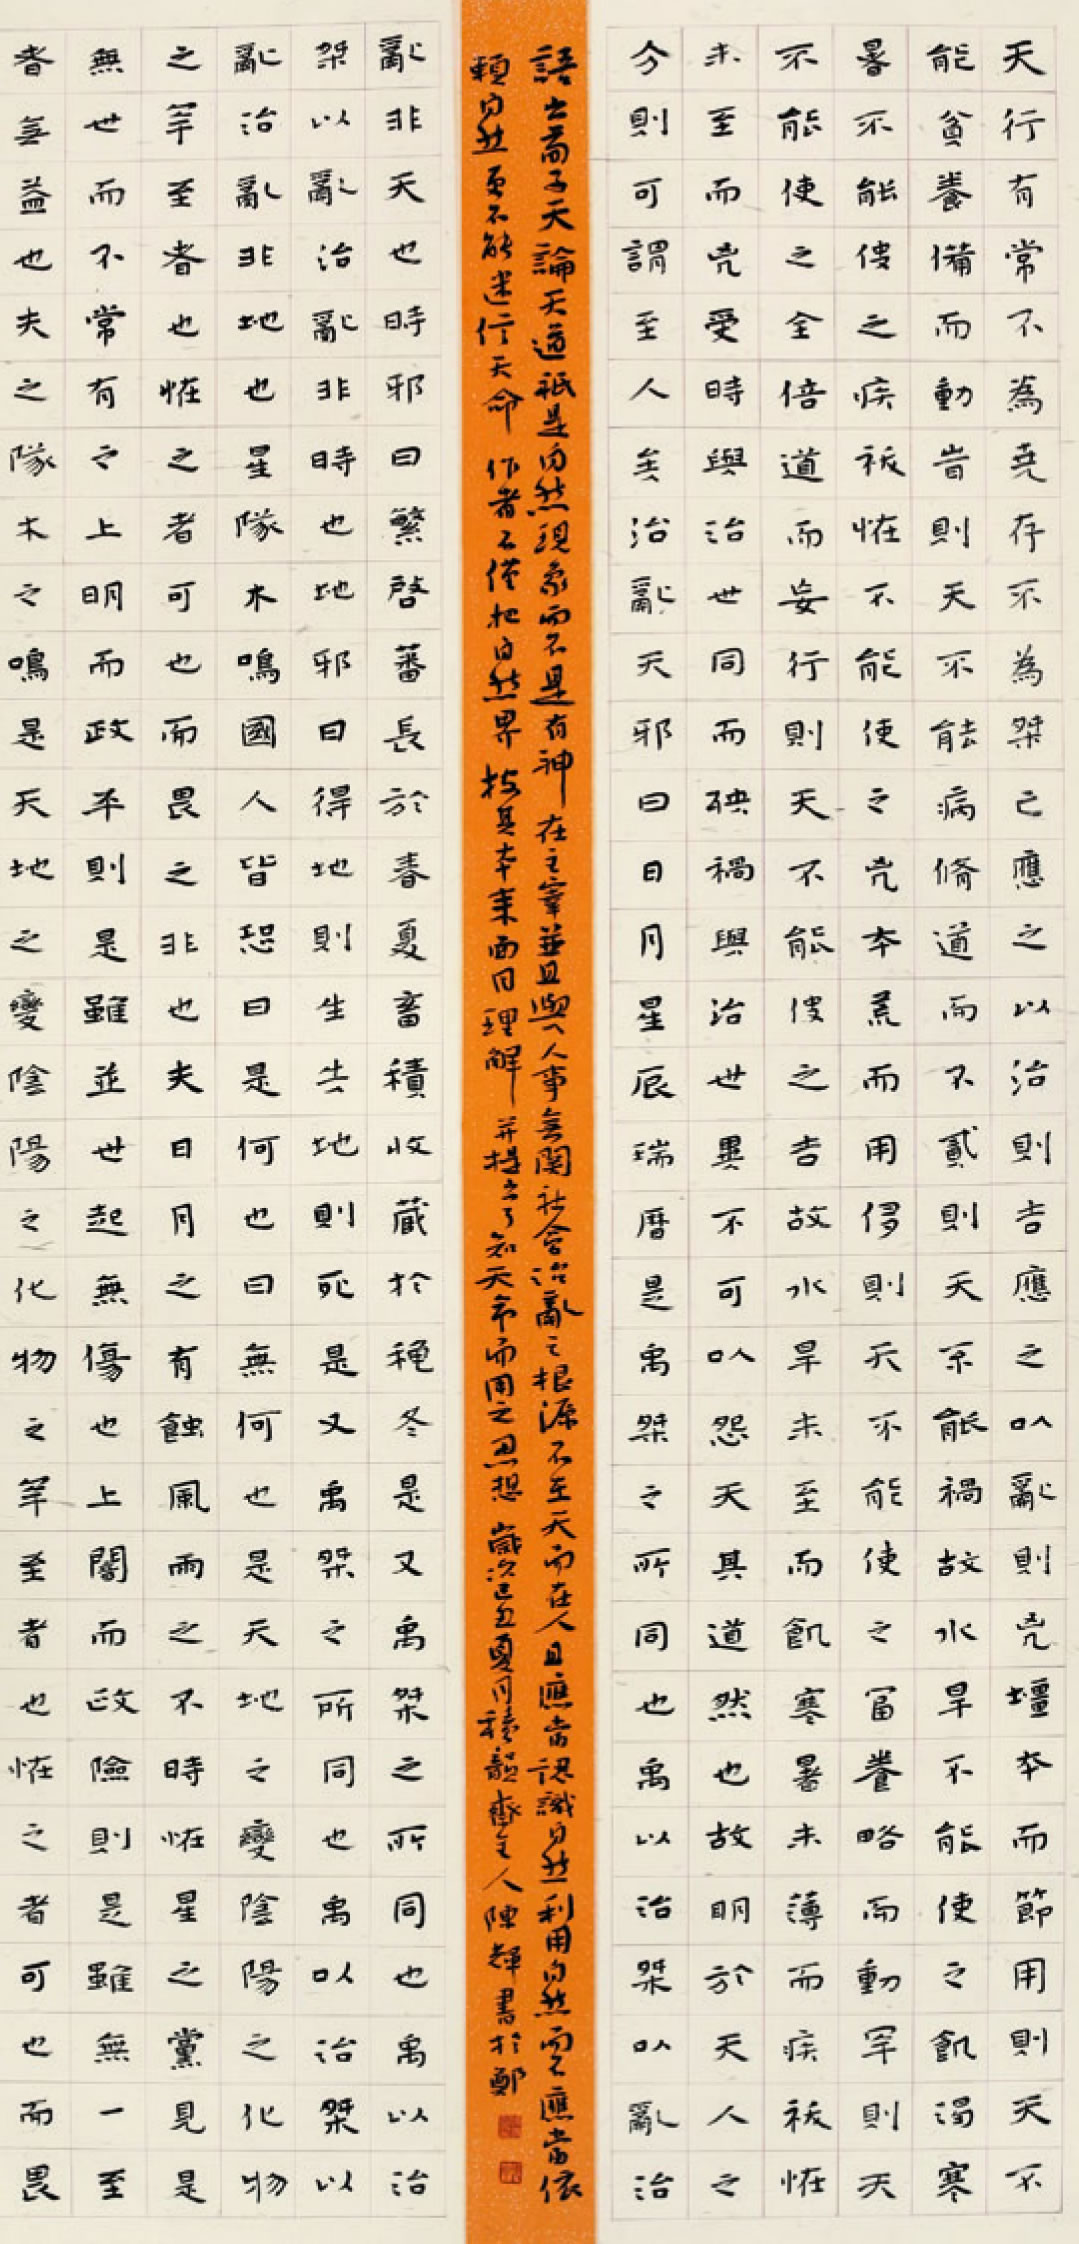 天行有常不為堯存不為桀亡應之以治則吉應之以亂則兇壃本而節用則天不
能貧養備而動旹則天不能病脩道而不貳則天不能禍故水旱不能使之飢渴寒
暑不能使之疾祅恠不能使之兇本荒而用侈則天不能使之富養略而動罕則天
不能使之全倍道而妄行則天不能使之吉故水旱未至而飢寒暑未薄而疾祅恠
未至而兇受時與治世同而殃禍與治世異不可以怨天其道然也故明於天人之
分則可謂至人矣治亂天邪曰日月星辰瑞曆是禹桀之所同也禹以治桀以亂治
語出荀子天論天道祇是自然現象而不是有神在主宰並且與人事無關社會治亂之根源不在天而在人且應當認識自然利用自然而不應當依
賴自然更不能迷信天命作者不僅把自然界按其本來面目理解并提出了知天命而用之思想歲次己丑夏月積韻齋主人陳輝書於鄭
亂非天也時邪曰繁啓蕃長於春夏畜積收蔵於秋冬是又禹桀之所同也禹以治
桀以亂治亂非時也地邪曰得地則生失地則死是又禹桀之所同也禹以治桀以
亂治亂非地也星隊木鳴國人皆恐曰是何也曰無何也是天地之變陰陽之化物
之罕至者也恠之者可也而畏之非也夫日月之有蝕風雨之不時恠星之黨見是
無世而不常有之上明而政平則是雖並世起無傷也上闇而政險則是雖無一至
者無益也夫之隊木之鳴是天地之變陰陽之化物之罕至者也恠之者可也而畏